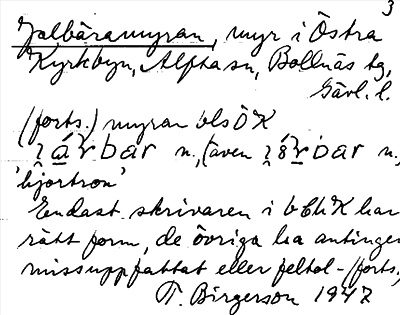 3
Jalbäramyran, myr i Östra
Kyrkbyn, Alfta sn, Bollnäs tg,
Gävl. l.
(forts.) myran bls ÖK
bar n., (även bar n.,
'hjortron'
Endast skrivaren i bChK har
rätt form, de övriga ha antingen
missuppfattat eller feltol- (forts.)
T. Birgerson 1947